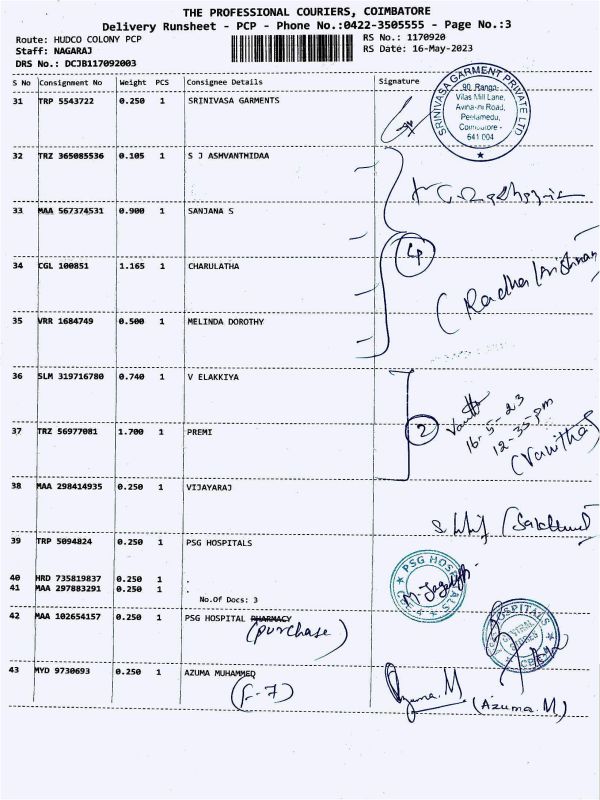 THE PROFESSIONAL COURIERS, COIMBATORE
Delivery Runsheet - PCP - Phone No.:0422-3505555 - Page No.:3
Route: HUDCO COLONY PCP RS No.: 1170920
Staff: NAGARAJ RS Date: 16-May-2023
DRS No.: DCJB117092003
S No Consignment No Weight PCS Consignee Details Signature
31 TRP 5543722 0.250 1 SRINIVASA GARMENTS
SRINIVASA GARMENT PRIVATE LTD
90, Ranga
Vilas Mill Lane,
Avinashi Road,
Peelamedu,
Coimbatore -
641 004
32 TRZ 365085536 0.105 1 S J ASHVANTHIDAA
33 MAA 567374531 0.900 1 SANJANA S
4
34 CGL 100851 1.165 1 CHARULATHA
(Radha Krishnan
35 VRR 1684749 0.500 1 MELINDA DOROTHY
36 SLM 319716780 0.740 1 V ELAKKIYA
16-5-23
12-35-pm
37 TRZ 56977081 1.700 1 PREMI
2
(Vanitha)
38 MAA 298414935 0.250 1 VIJAYARAJ
39 TRP 5094824 0.250 1 PSG HOSPITALS
PSG HOSPITALS
40 HRD 735819837 0.250 1 .
41 MAA 297883291 0.250 1 .
No.Of Docs: 3
42 MAA 102654157 0.250 1 PSG HOSPITAL PHARMACY
(purchase)
PSG HOSPITALS
43 MYD 9730693 0.250 1 AZUMA MUHAMMED
(F-7)
Azuma.M (Azuma.M.)